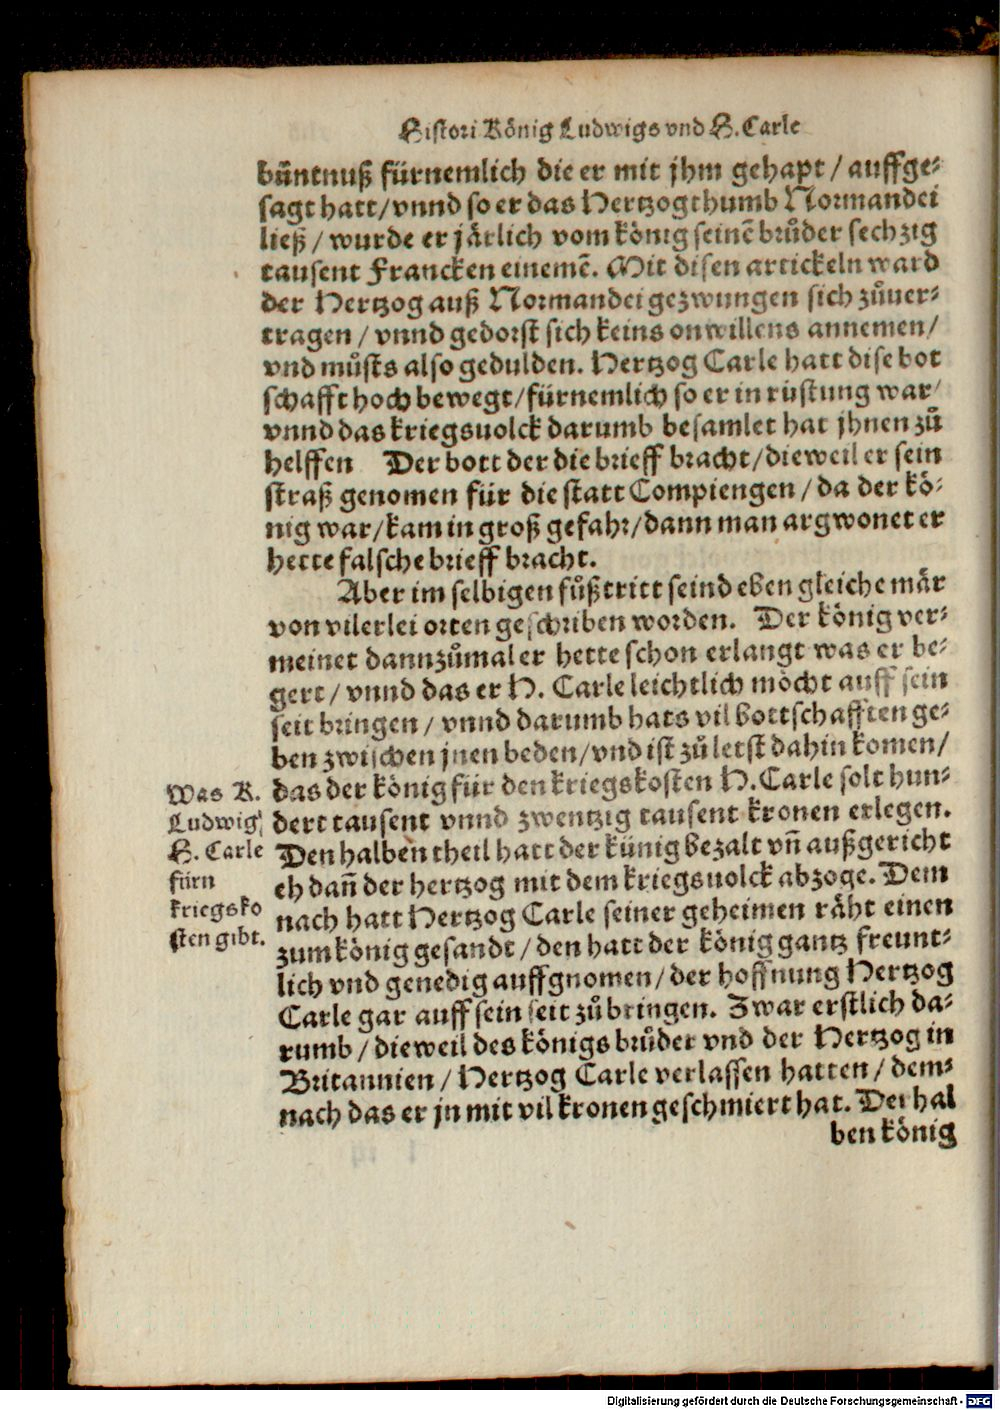 Histori König Ludwigs vnd H. Carle
büntnuß fürnemlich die er mit jhm gehapt / auffge-
sagt hatt / vnnd so er das Hertzogthumb Normandei
ließ / wurde er järlich vom könig seinē brůder sechzig
tausent Francken einemē. Mit disen artickeln ward
der Hertzog auß Normandei gezwungen sich zůuer-
tragen / vnnd gedorst sich keins onwillens annemen /
vnd můsts also gedulden. Hertzog Carle hatt dise bot
schafft hoch bewegt / fürnemlich so er in rüstung war /
vnnd das kriegsuolck darumb besamlet hat jhnen zů
helffen Der bott der die brieff bracht / dieweil er sein
straß genomen für die statt Compiengen / da der kö-
nig war / kam in groß gefahr / dann man argwonet er
hette falsche brieff bracht.
Aber im selbigen fůßtritt seind eben gleiche mär
von vilerlei orten geschriben worden. Der könig ver-
meinet dannzůmal er hette schon erlangt was er be-
gert / vnnd das er H. Carle leichtlich möcht auff sein
seit bringen / vnnd darumb hats vil bottschafften ge-
ben zwischen jnen beden / vnd ist zů letst dahin komen /
das der könig für den kriegskosten H. Carle solt hun-
dert tausent vnnd zwentzig tausent kronen erlegen.
Den halben theil hatt der künig bezalt vñ außgericht
eh dañ der hertzog mit dem kriegsuolck abzoge. Dem
nach hatt Hertzog Carle seiner geheimen räht einen
zum könig gesandt / den hatt der könig gantz freunt-
lich vnd genedig auffgnomen / der hoffnung Hertzog
Carle gar auff sein seit zůbringen. Zwar erstlich da-
rumb / dieweil des königs brůder vnd der Hertzog in
Britannien / Hertzog Carle verlassen hatten / dem-
nach das er jn mit vil kronen geschmiert hat. Der hal
ben könig
Was K.
Ludwig
H. Carle
fürn
kriegsko
sten gibt.
Digitalisierung gefördert durch die Deutsche Forschungsgemeinschaft - DFG